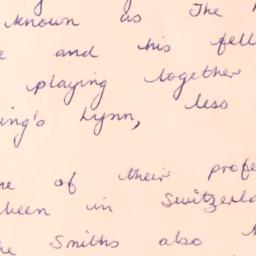 known as The
and his fell
playing together
ing's Lynn, less
of their profe
been in Switzerla
he Smiths also